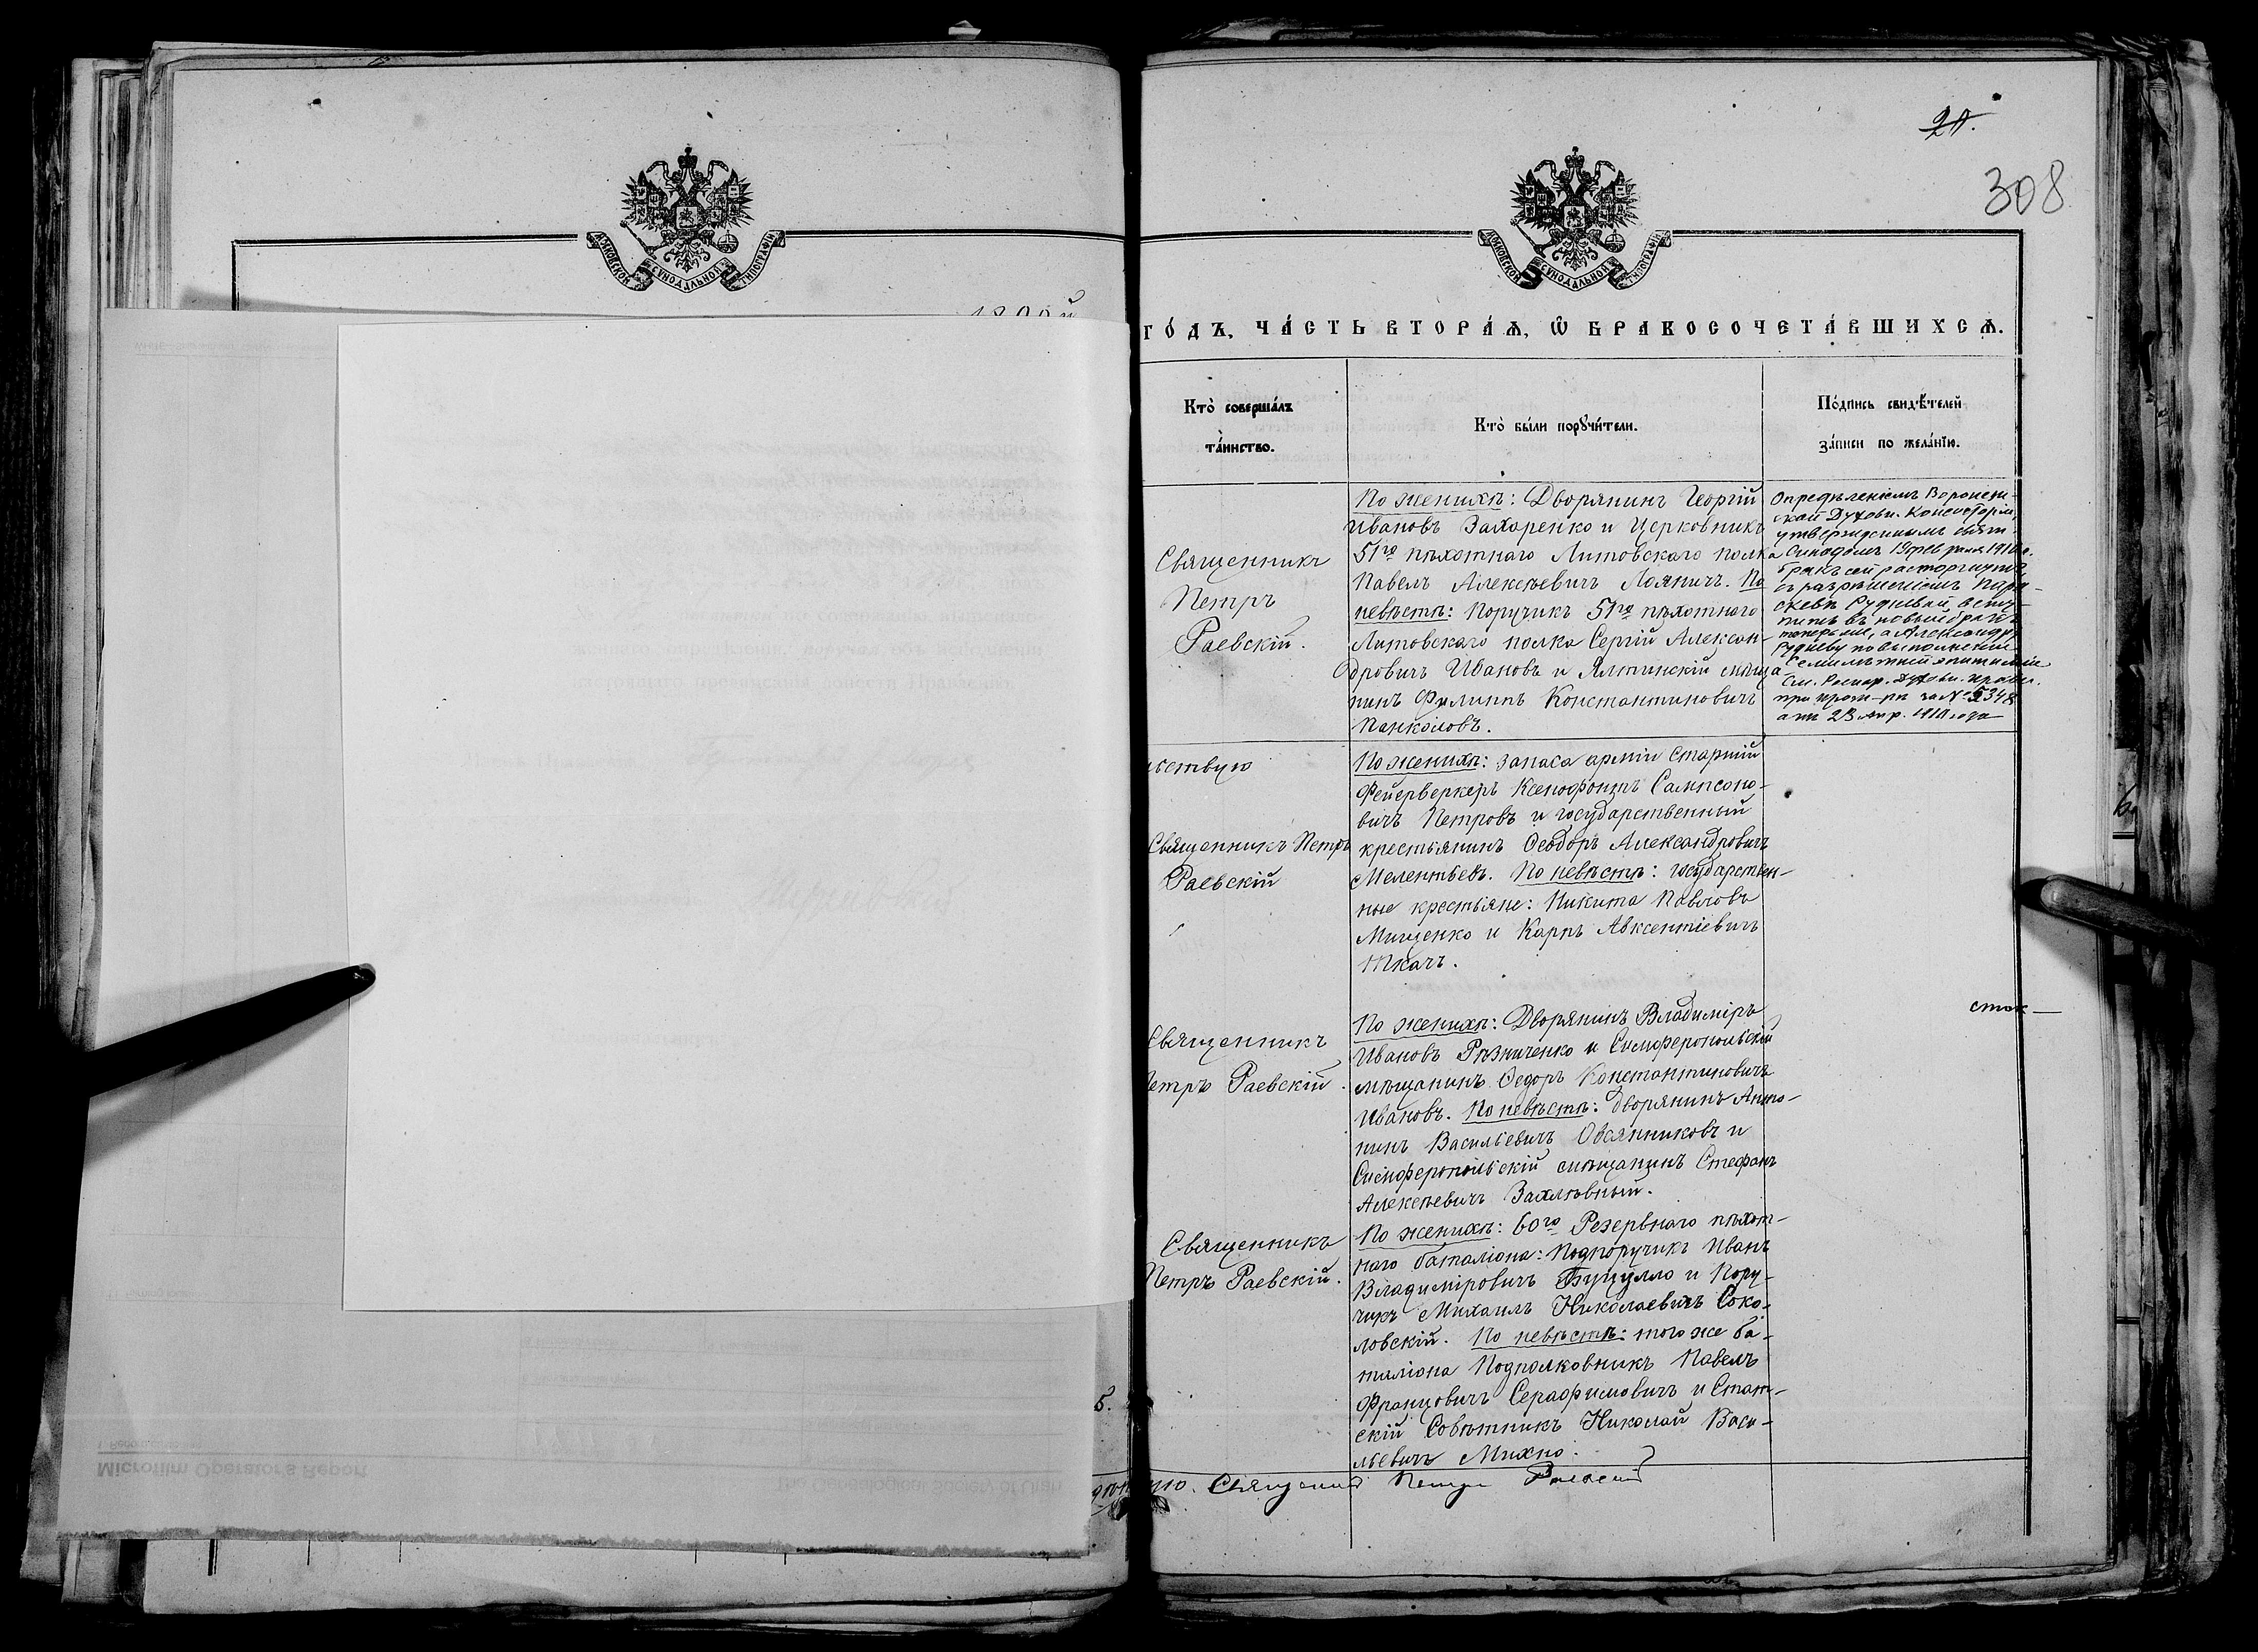 21.
308
МОСКОВСКОЙ СѴНОДАЛЬНОЙ ТИПОГРАФІИ
МОСКОВСКОЙ СѴНОДАЛЬНОЙ ТИПОГРАФІИ
ГО́ДЪ, ЧА́СТЬ ВТОРА́Ѧ, Ѡ҆ БРАКОСОЧЕТА́ВШИХСѦ.
Кто̀ соверша́лъ
та́инство.
Кто̀ бы́ли порꙋчи́тели.
По́дпись свидѣ́телей
за́писи по жела́нїю.
Священникъ
Петръ
Раевскій.
По женихѣ: Дворянинъ Георгій
Ивановъ Захаренко и Церковникъ
51го пѣхотнаго Литовскаго полка
Павелъ Алексѣевичъ Лоянич. По
невѣстѣ: Поручикъ 51го пѣхотнаго
Литовскаго полка Сергій Алексан-
дровичъ Ивановъ и Ялтинскій мѣща-
нинъ Филиппъ Константиновичъ
Панкаловъ.
Опредѣленіемъ Воронеж-
ской Духовн. Консисторіи,
утвержденнымъ Свят.
Синодомъ февраля 1910 г.
бракъ сей расторгнутъ
съ разрѣшеніемъ Пара-
скевѣ Рудневой всту-
пить въ новый бракъ
теперь же, а Александру
Рудневу по выполненіи
семилѣтней эпитиміи
См. Духовн. правл.
при за № 5348
отъ 23 апр. 1910 года
ьствую
Священникъ Петръ
Раевскій
По женихѣ: запаса арміи старшій
Фейерверкеръ Ксенофонтъ Сампсоно-
вичъ Петровъ и государственный
крестьянинъ Ѳеодоръ Александровичъ
Мелентьевъ. По невѣстѣ: государствен-
ные крестьяне: Никита Павловъ
Мищенко и Карпъ Авксентіевичъ
Ткачъ.
Священникъ
Петръ Раевскій.
По женихѣ: Дворянинъ Владиміръ
Ивановъ Рѣзниченко и Симферопольскій
мѣщанинъ Ѳедоръ Константиновичъ
Ивановъ. По невѣстѣ: дворянинъ Анто-
нинъ Васильевичъ Овсянниковъ и
Симферопольскій мѣщанинъ Стефанъ
Алексѣевичъ Захлѣвный.
Священникъ
Петръ Раевскій.
По женихѣ: 60го Резервнаго пѣхот-
наго баталіона: Подпоручикъ Иванъ
Владиміровичъ и Пору-
чикъ Михаилъ Николаевичъ Соко-
ловскій. По невѣстѣ: того же ба-
таліона Подполковникъ Павелъ
Францовичъ Серафимовичъ и Стат-
скій Совѣтникъ Николай Васи-
льевичъ Михно.
Священникъ Петръ Раевскій
Microfilm Operator's Report
The Genealogical Society of Utah